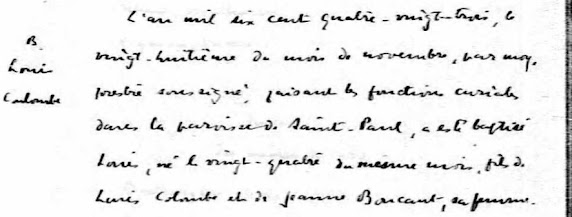 L'an mil six cent quatre-vingt-trois, le
B.
vingt-huitième du mois de novembre, par moy,
Louis
prestre soussigné, faisant les fonctions curiales
Coulombe
dans la paroisse de Saint-Paul, a esté baptisé
Louis, né le vingt-quatre du mesme mois, fils de
Louis Colombe et de Jeanne Boucaut, sa femme.